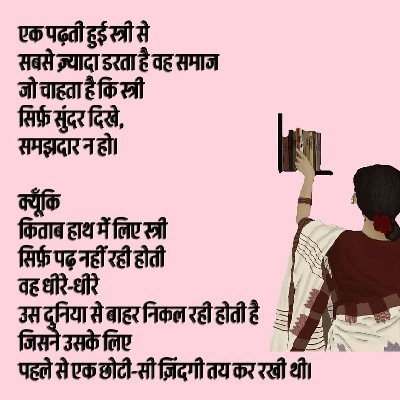 एक पढ़ती हुई स्त्री से
सबसे ज़्यादा डरता है वह समाज
जो चाहता है कि स्त्री
सिर्फ़ सुंदर दिखे,
समझदार न हो।
क्यूँकि
किताब हाथ में लिए स्त्री
सिर्फ़ पढ़ नहीं रही होती
वह धीरे-धीरे
उस दुनिया से बाहर निकल रही होती है
जिसने उसके लिए
पहले से एक छोटी-सी ज़िंदगी तय कर रखी थी।